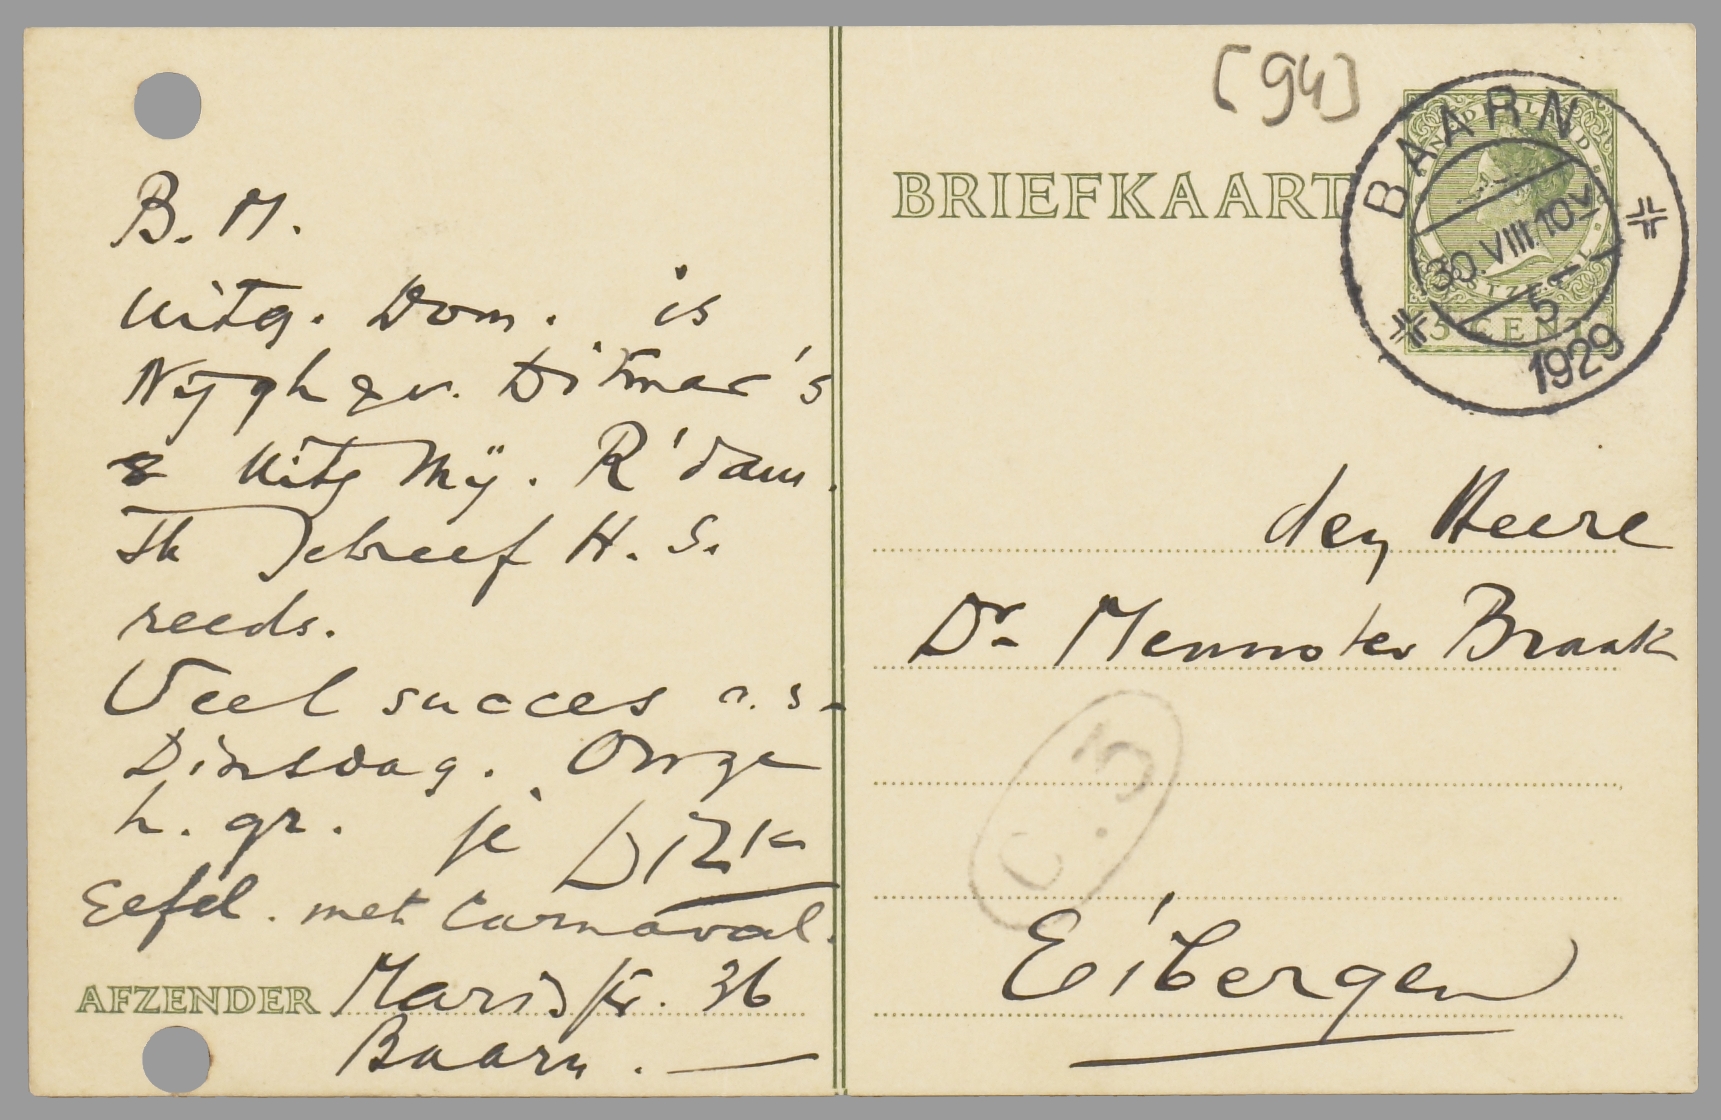 B. M.
Uitg. Dom. is
Nijgh & v. Ditmar's
& Uitg Mij. R'dam.
Ik schreef H. S.
reeds.
Veel succes a.s.
Dinsdag.
h. gr. je Dirk
Eefel. met Carnaval.
AFZENDER Marisstr. 36
Baarn.
[94]
BRIEFKAART
BAARN
30.VIII.10V
5
1929
NEDERLAND
5 CENT
den Heere
Dr Menno ter Braak
C.5
Eibergen